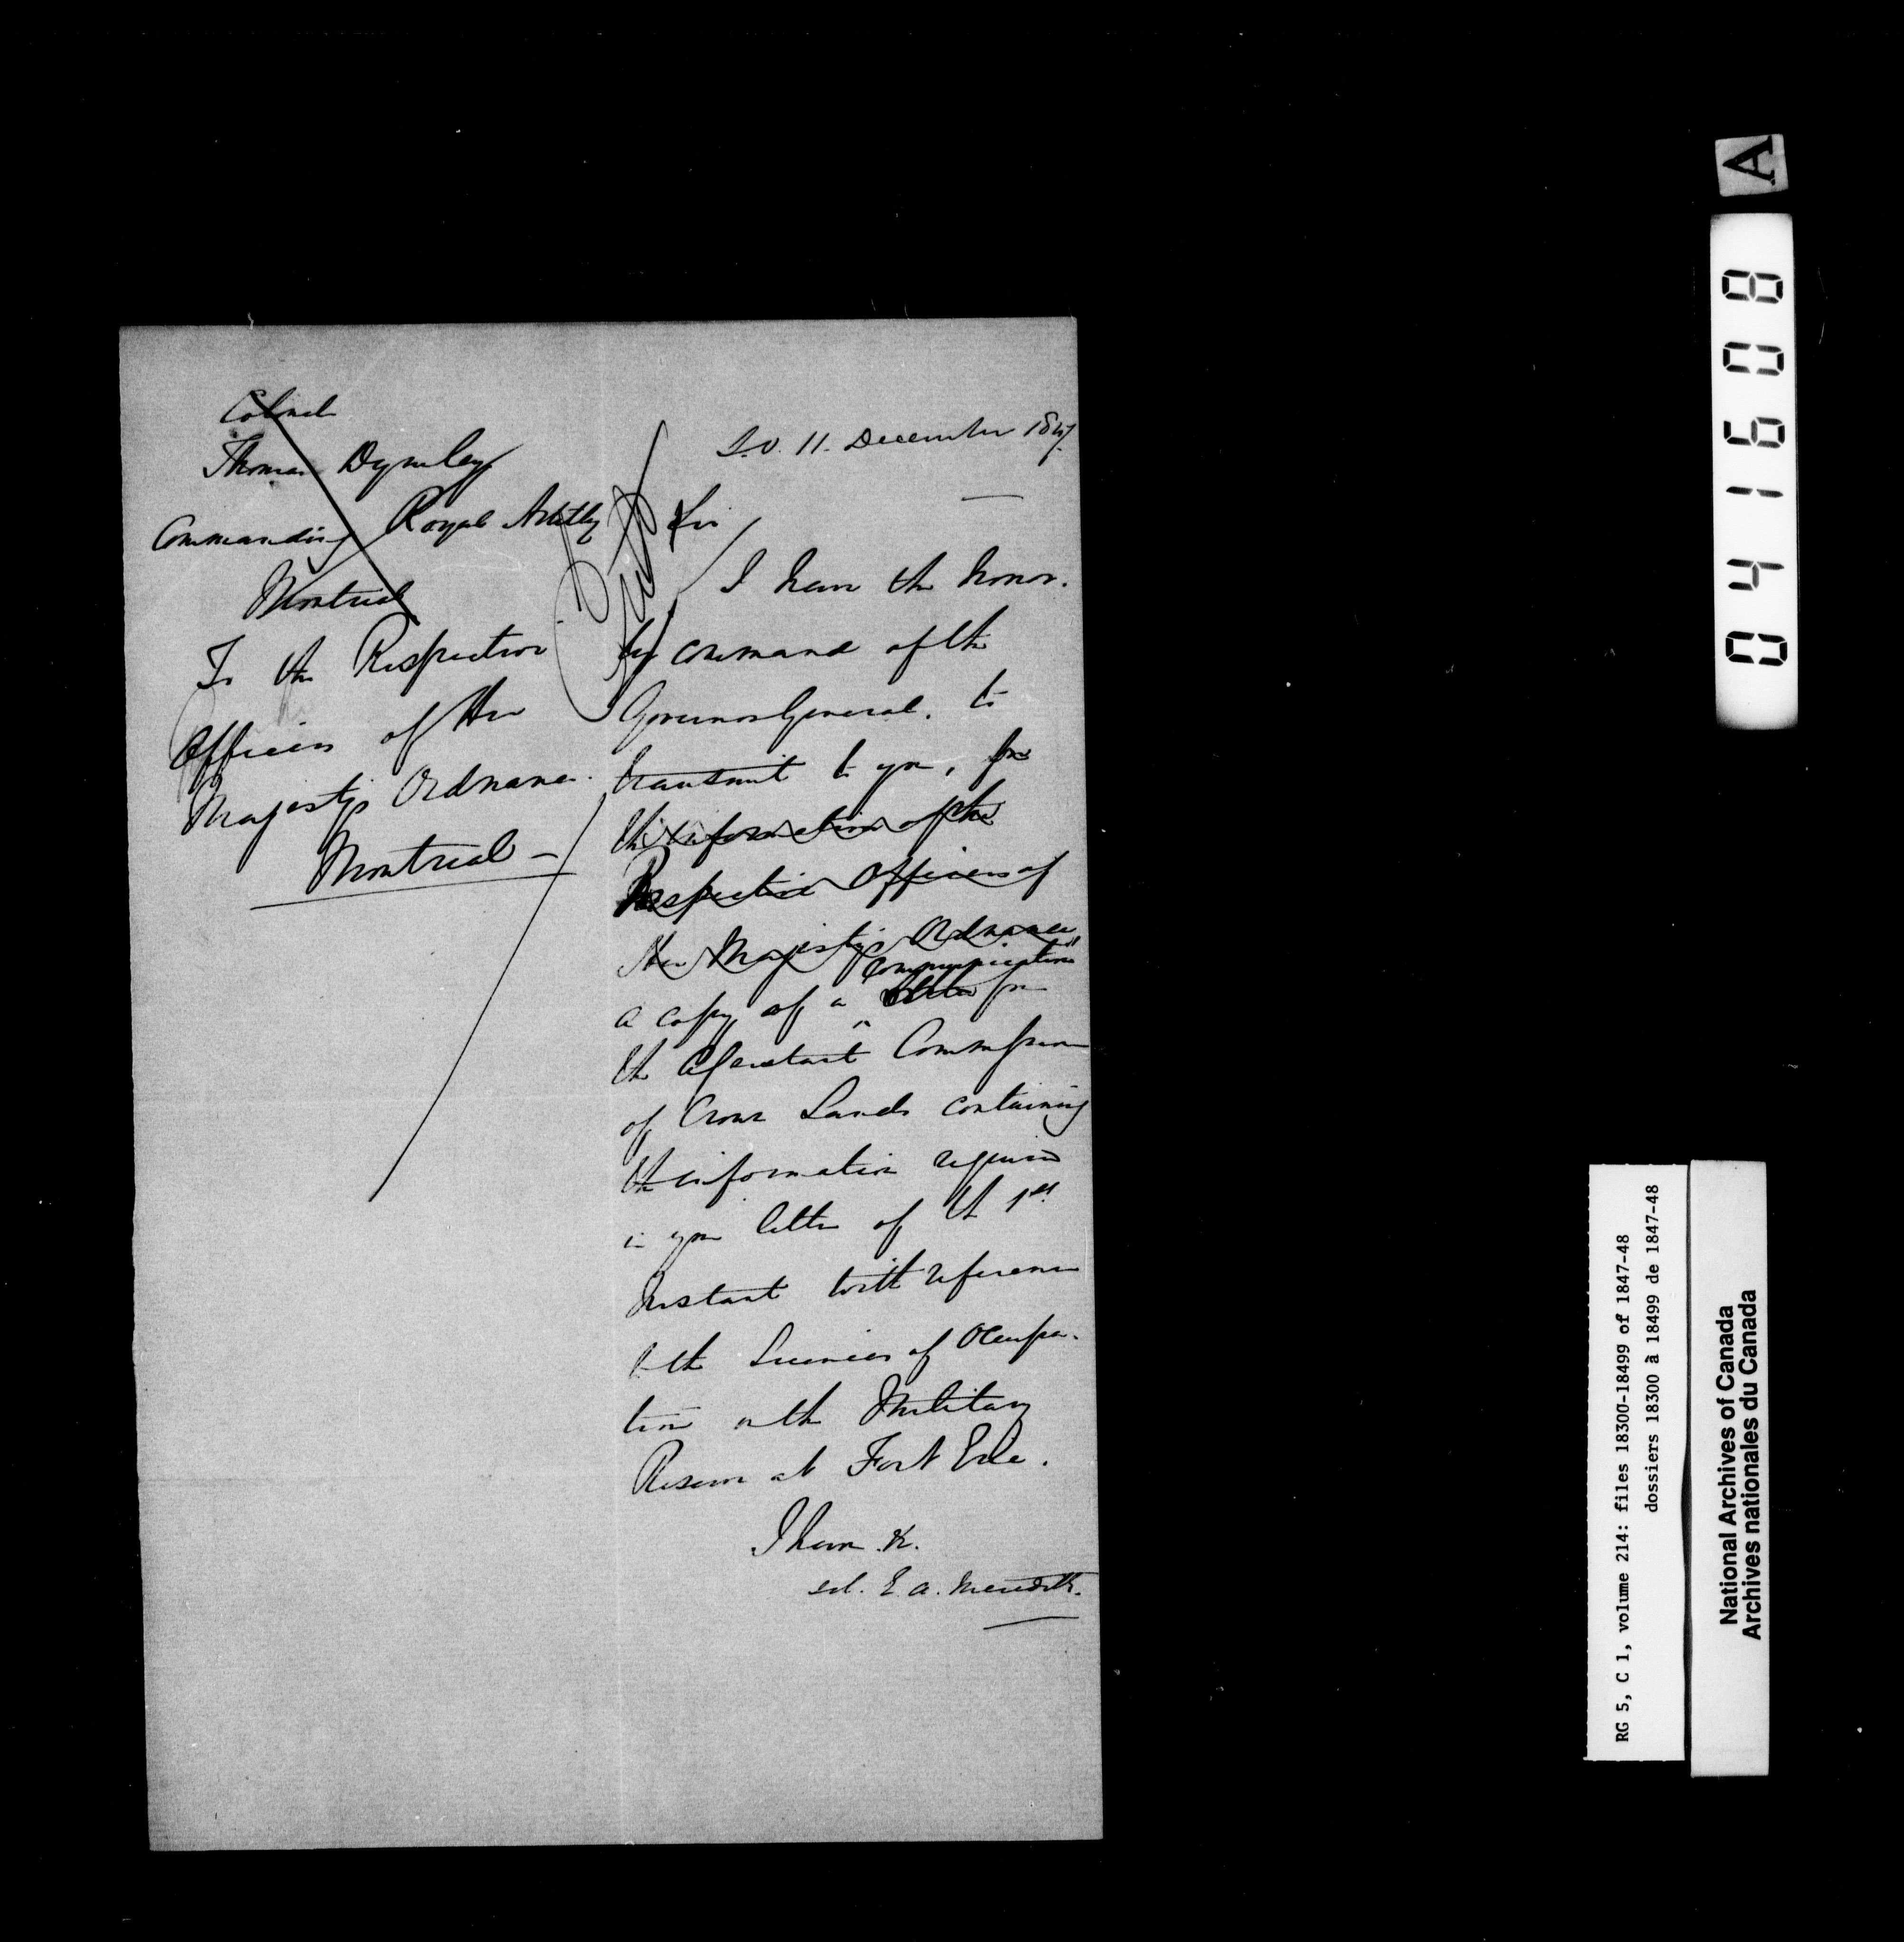 Colonel
Thomas Dynely
Commanding Royal Artilly
Montreal
To the Respective
Officers of Her
Majesty's Ordnance.
Montreal –
S.O. 11. December 1847.
Sir
I have the honor.
by command of the
Governor General. to
transmit to you, for
the information of the
Respective Officers of
Her Majesty's Ordnance
communication
a copy of a letter from
the Assistant Commissioner
of Crown Lands containing
the information required
in your letter of the 1st
Instant with reference
to the Licences of Occupa-
tion on the Military
Reserve at Fort Erie.
I have &c.
sd. E. A. Meredith.
A
041608
RG 5, C 1, volume 214: files 18300-18499 of 1847-48
dossiers 18300 à 18499 de 1847-48
National Archives of Canada
Archives nationales du Canada